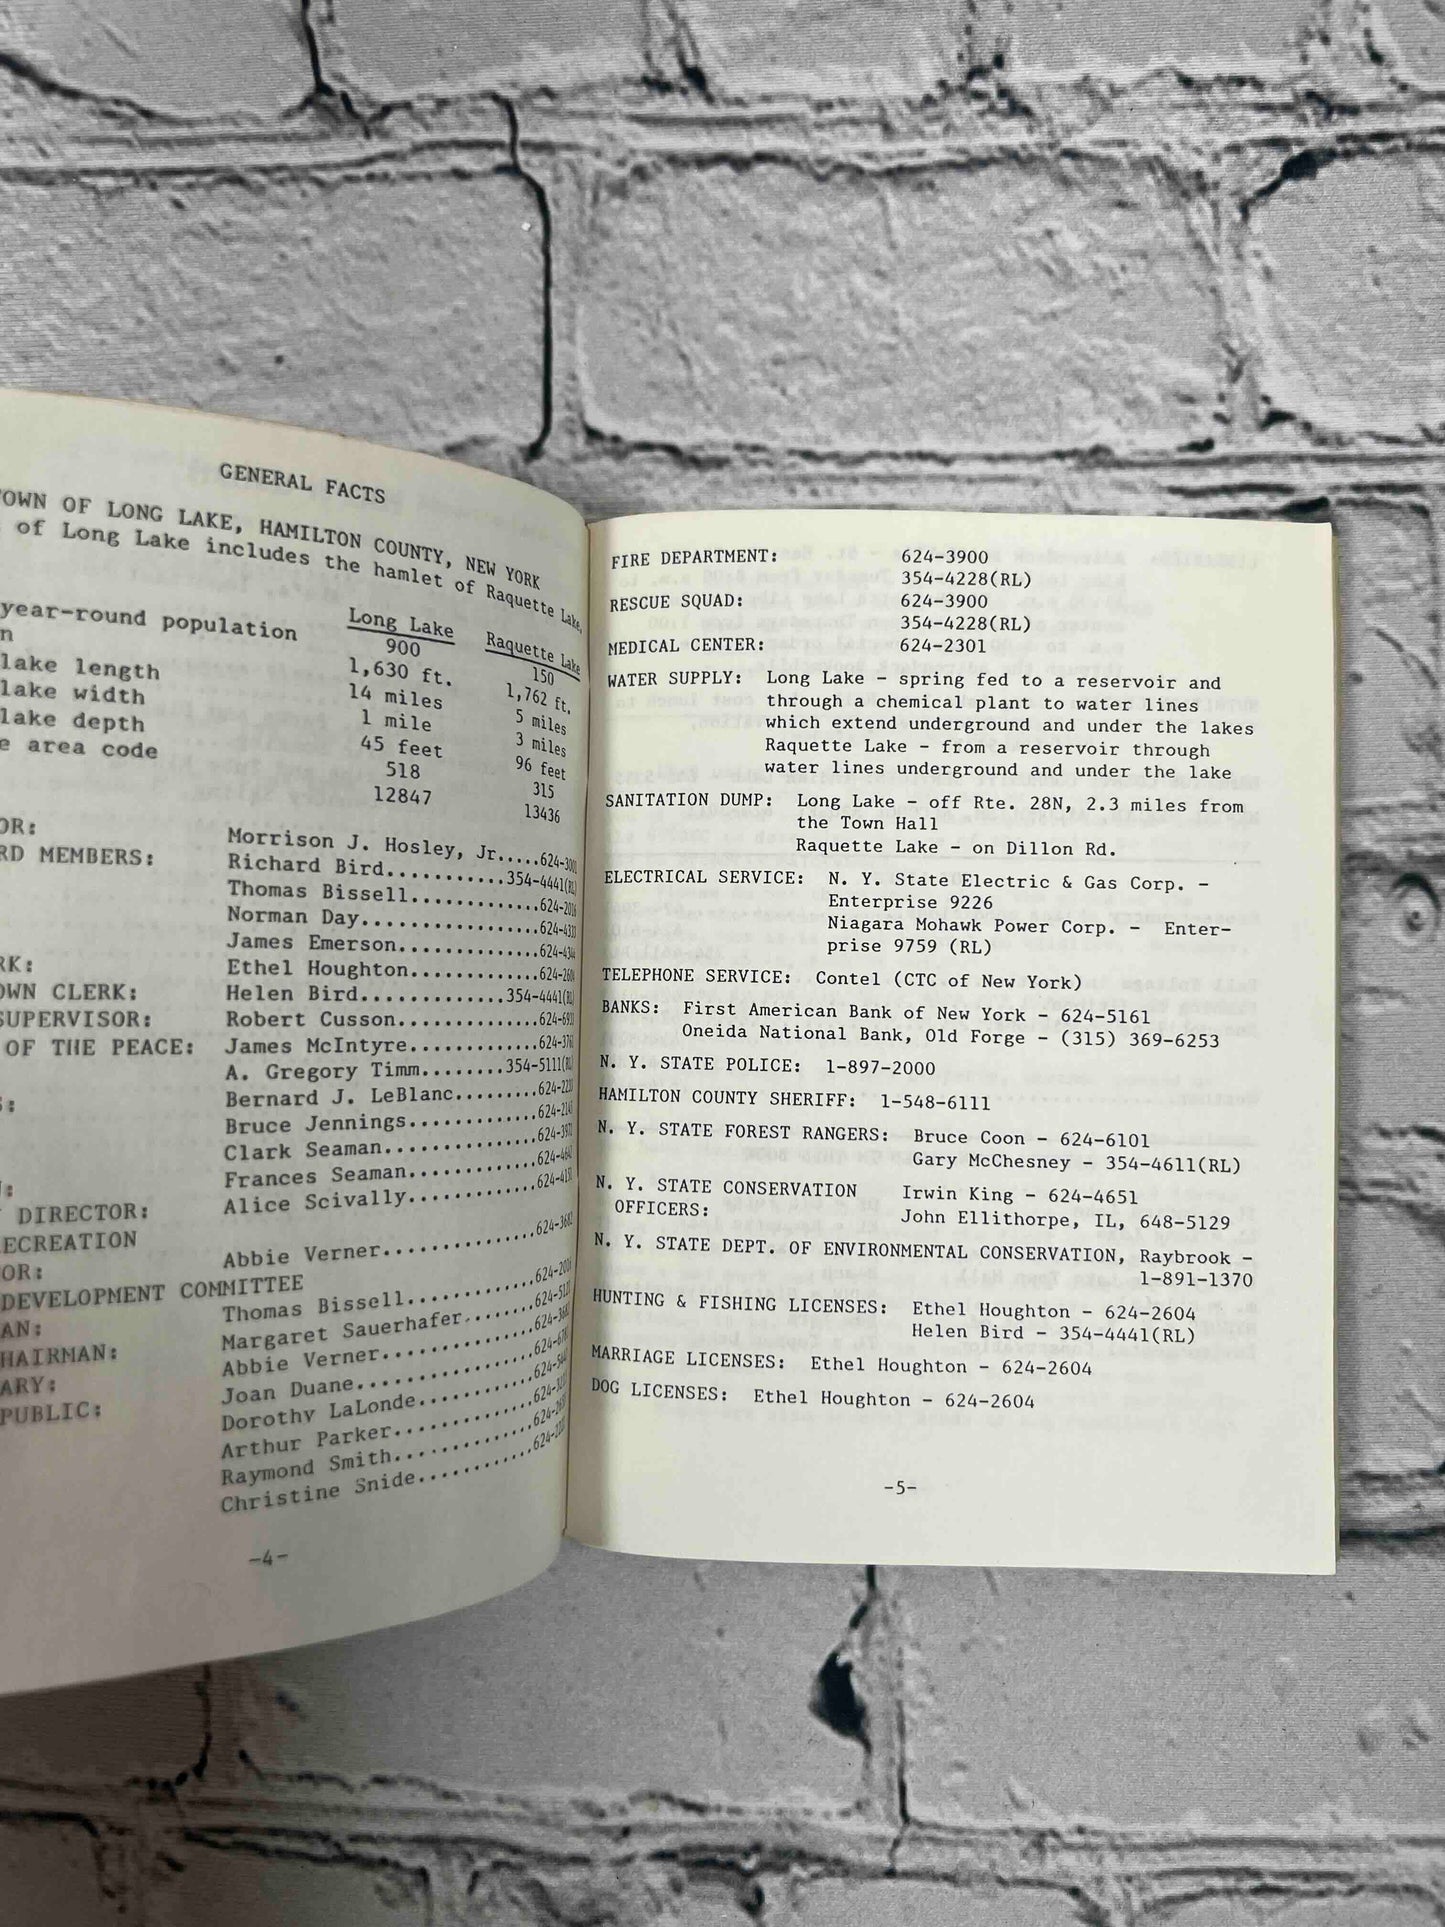 GENERAL FACTS
TOWN OF LONG LAKE, HAMILTON COUNTY, NEW YORK
of Long Lake includes the hamlet of Raquette Lake.
Long Lake Raquette Lake
year-round population 900 150
n 1,630 ft. 1,762 ft.
lake length 14 miles 5 miles
lake width 1 mile 3 miles
lake depth 45 feet 96 feet
e area code 518 315
12847 13436
OR: Morrison J. Hosley, Jr.....624-3001
RD MEMBERS: Richard Bird...........354-4441(RL)
Thomas Bissell............624-2016
Norman Day................624-4333
James Emerson.............624-4344
RK: Ethel Houghton............624-2604
OWN CLERK: Helen Bird.............354-4441(RL)
SUPERVISOR: Robert Cusson.............624-6933
OF THE PEACE: James McIntyre............624-3761
A. Gregory Timm........354-5111(RL)
S: Bernard J. LeBlanc.........624-2220
Bruce Jennings............624-2145
Clark Seaman..............624-3971
Frances Seaman............624-4647
N: Alice Scivally............624-4151
DIRECTOR:
RECREATION
OR: Abbie Verner..............624-3682
DEVELOPMENT COMMITTEE
AN: Thomas Bissell............624-2001
HAIRMAN: Margaret Sauerhafer.......624-5121
ARY: Abbie Verner..............624-3682
PUBLIC: Joan Duane................624-6782
Dorothy LaLonde...........
Arthur Parker.............
Raymond Smith.............
Christine Snide...........
-4-
FIRE DEPARTMENT: 624-3900
354-4228(RL)
RESCUE SQUAD: 624-3900
354-4228(RL)
MEDICAL CENTER: 624-2301
WATER SUPPLY: Long Lake - spring fed to a reservoir and
through a chemical plant to water lines
which extend underground and under the lakes
Raquette Lake - from a reservoir through
water lines underground and under the lake
SANITATION DUMP: Long Lake - off Rte. 28N, 2.3 miles from
the Town Hall
Raquette Lake - on Dillon Rd.
ELECTRICAL SERVICE: N. Y. State Electric & Gas Corp. -
Enterprise 9226
Niagara Mohawk Power Corp. - Enter-
prise 9759 (RL)
TELEPHONE SERVICE: Contel (CTC of New York)
BANKS: First American Bank of New York - 624-5161
Oneida National Bank, Old Forge - (315) 369-6253
N. Y. STATE POLICE: 1-897-2000
HAMILTON COUNTY SHERIFF: 1-548-6111
N. Y. STATE FOREST RANGERS: Bruce Coon - 624-6101
Gary McChesney - 354-4611(RL)
N. Y. STATE CONSERVATION Irwin King - 624-4651
OFFICERS: John Ellithorpe, IL, 648-5129
N. Y. STATE DEPT. OF ENVIRONMENTAL CONSERVATION, Raybrook -
1-891-1370
HUNTING & FISHING LICENSES: Ethel Houghton - 624-2604
Helen Bird - 354-4441(RL)
MARRIAGE LICENSES: Ethel Houghton - 624-2604
DOG LICENSES: Ethel Houghton - 624-2604
-5-